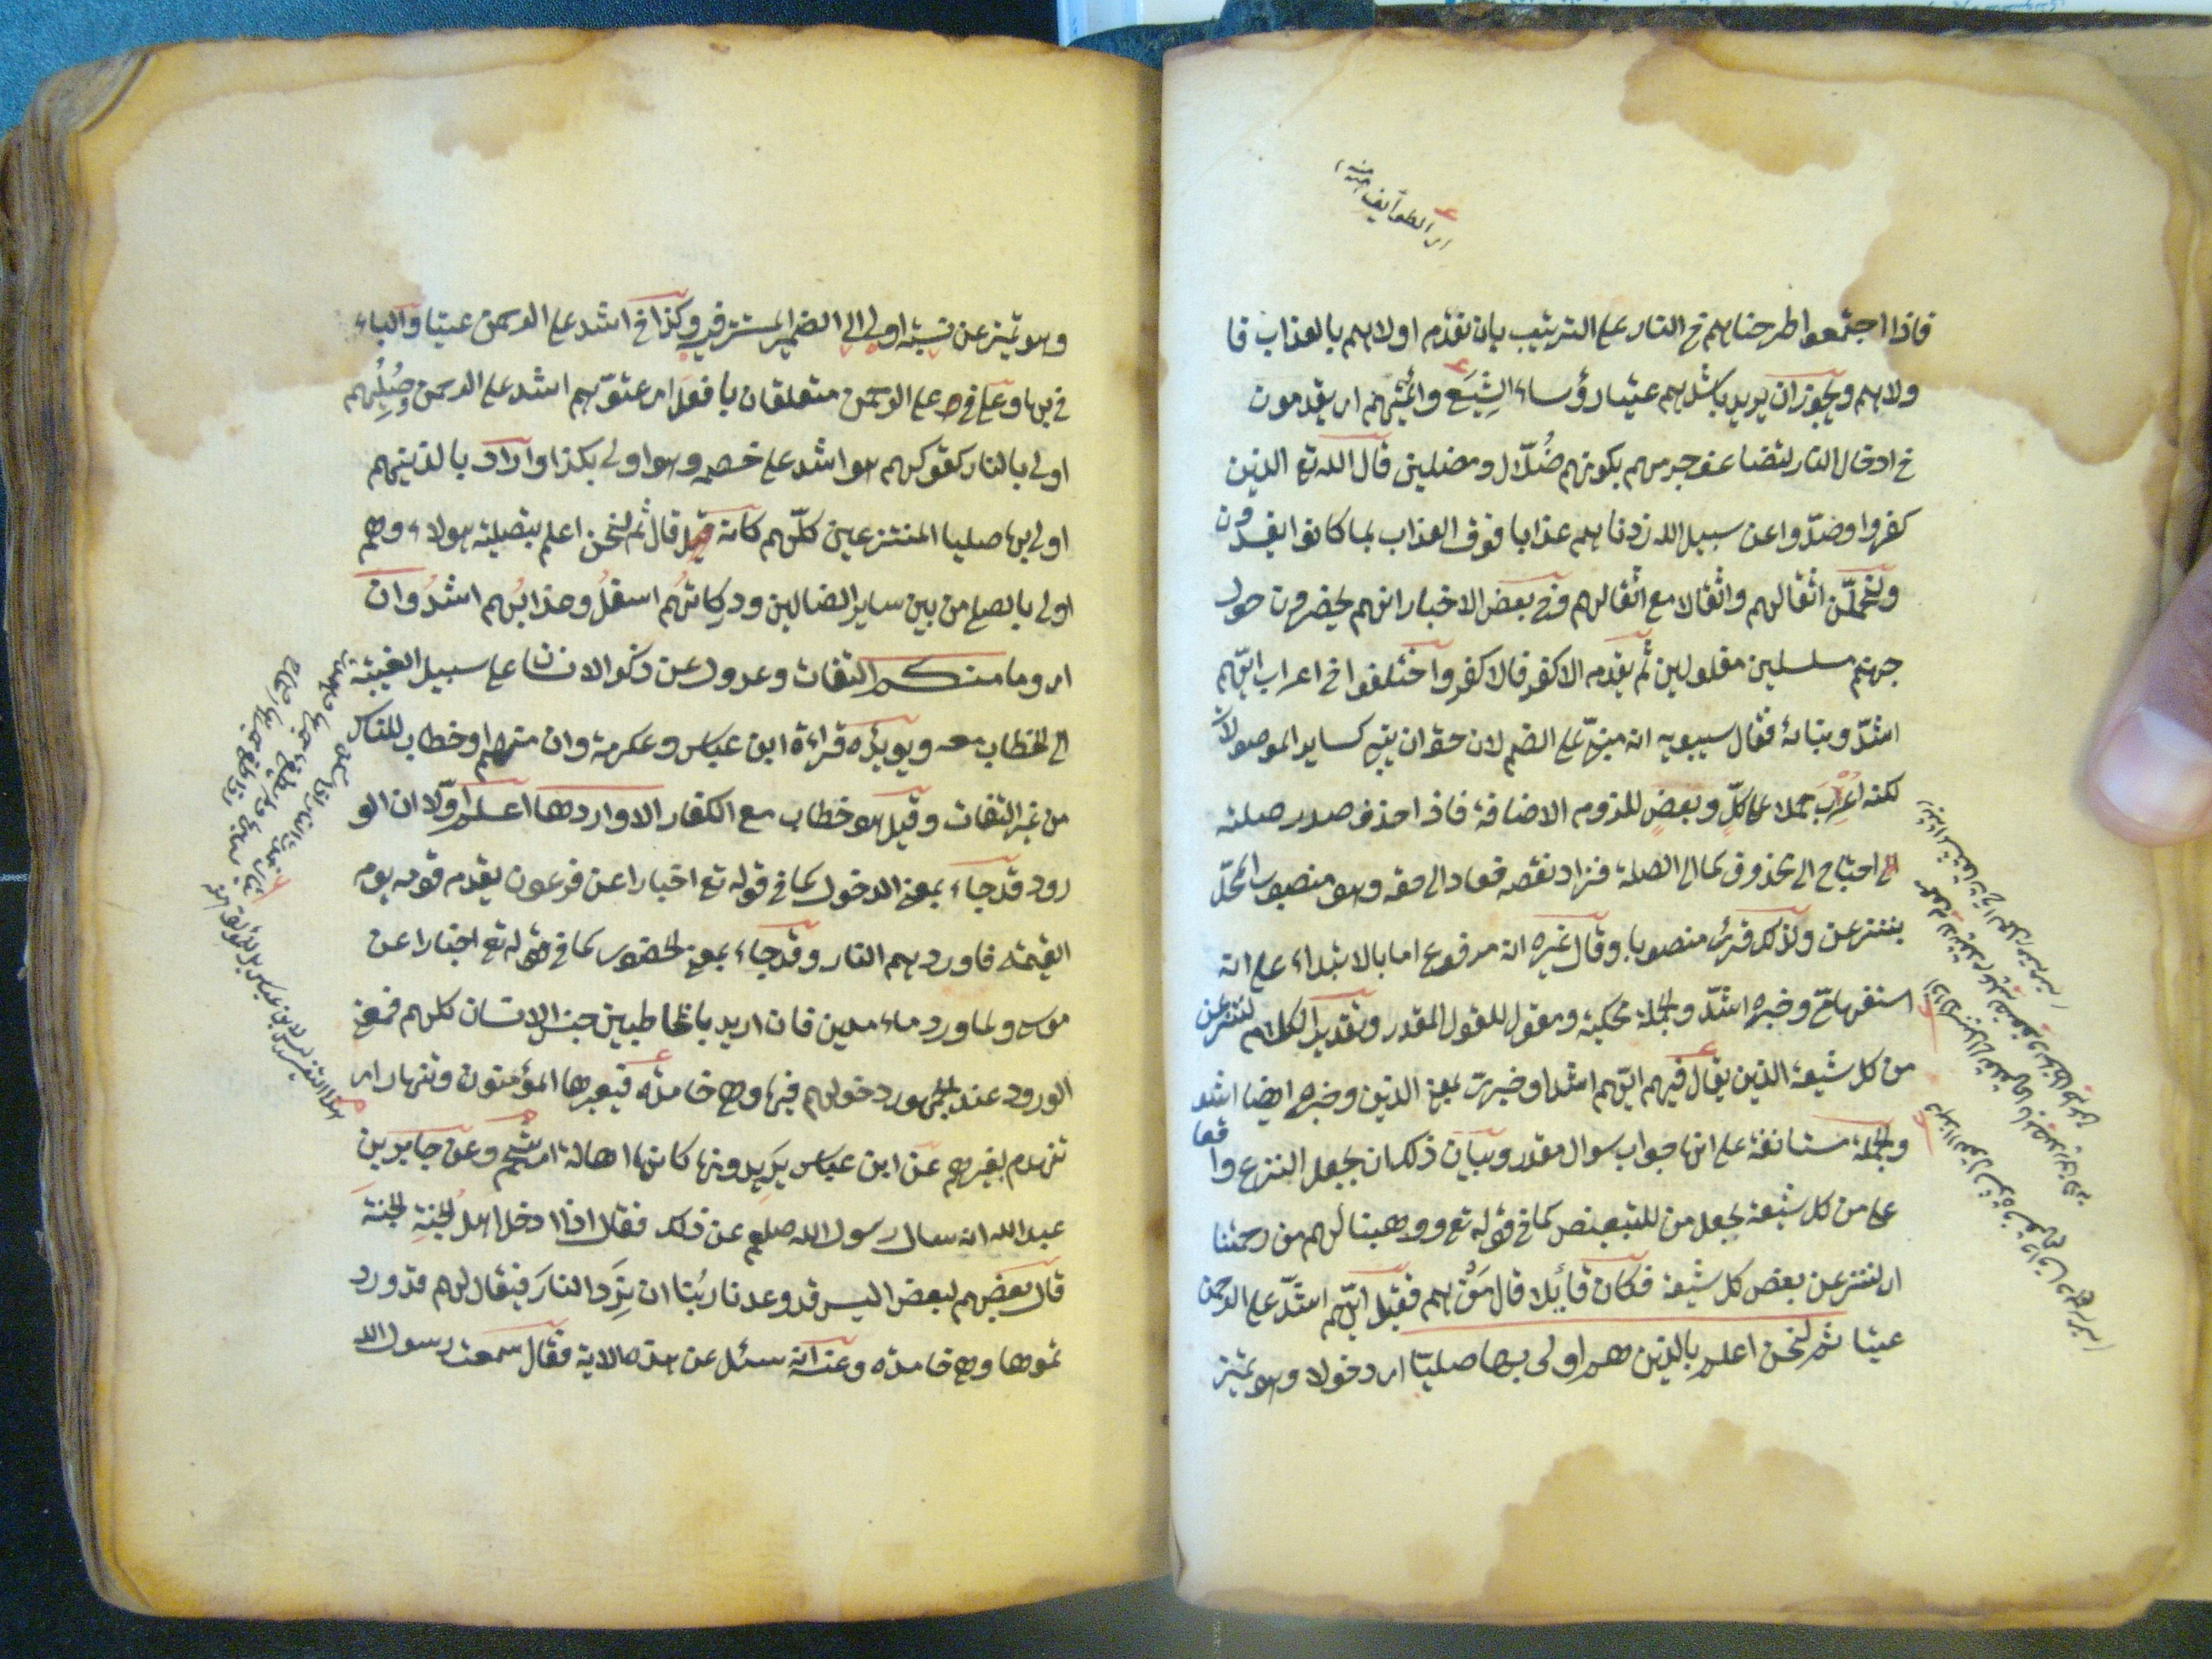 اى الطوائف منه
فاذا اجتمعوا طرحناهم في النار على الترتيب بان نقدم اولاهم بالعذاب فا
ولاهم ويجوز ان يريد باشدهم عتيا رؤساء الشِيَع وائمتهم اى يقدمون
في ادخال النار لتضاعف جرمهم بكونهم ضُلّال ومضلين قال الله تع الذين
كفروا وصدّوا عن سبيل الله زدناهم عذابا فوق العذاب بما كانوا يفسدون
وليحملنّ اثقالهم واثقالا مع اثقالهم وفي بعض الاخبار انهم يحضرون حول
جهنم مسلسلين مغلولين ثم يقدم الاكفر فالاكفر واختلفوا في اعراب ايّهم
اشدّ وبنائه فقال سيبويه انه مبنىّ على الضم لان حقه ان يبنى كساير الموصولات
لكنه اُعرِب حملا على كلّ وبعضٍ للذوم الاضافة فاذا حذف صدر صلته
احتاج الى محذوف كما الى الصلة فزاد نقصه فعاد الى حقه وهو منصوب المحلّ
بننزعن وكذلك قرئ منصوبا وقال غيره انه مرفوع اما بالابتداء على انه
استفهامىّ وخبره اشدّ والجملة محكية ومقول للقول المقدر وتقدير الكلام لننزعن
من كل شيعة الذين يقال فيهم ايّهم اشد او خبرت بمعنى الذين وخبره ايضا اشد
والجملة مستانفة على انها جواب سوال مقدر وبيان ذلك ان يجعل النزع واقعا
على من كل شيعة بجعل من للتبعيض كما في قوله تع ووهبنا لهم من رحمتنا
اى لننزعن بعض كل شيعة فكان قائلا قال مَن هم فقيل ايّهم اشدّ على الرحمن
عتيا ثم لنحن اعلم بالذين هم اولى بها صليّا اى دخولا وهو تميز
وهو تميز عن نسبة اولى الى الضمير المستتر فيه وكذا في اشد على الرحمن عتيا والباء
في بها وعلى في على الرحمن متعلقان بافعل اى عتوّهم اشد على الرحمن وصُلِيُّهم
اولى بالنار كقولهم هو اشد على خصمه وهو اولى بكذا واراد بالذين هم
اولى بها صليا المنتزعين كلّهم كانه قال ثم لنحن اعلم بتصلية هولاء وهم
اولى بالصلى من بين ساير الضالين ودركاتهُم اسفلُ وعذابُهم اشدُّ وان
اى وما منكم التفات وعدول عن ذكر الانسان على سبيل الغيبة
الى الخطاب معه ويويّده قراءة ابن عباس وعكرمة وان منهم او خطاب للناس
من غير التفات وقيل هو خطاب مع الكفار الا واردها اعلم اوّلا ان الو
رود قد جاء بمعنى الدخول كما في قوله تع اخبارا عن فرعون يقدم قومه يوم
القيمة فاوردهم النار وقد جاء بمعنى الحضور كما في قوله تع اخبارا عن
موسى ولما ورد ماء مدين فان اريد بالمخاطبين جنس الانسان كلهم فمعنى
الورود عند الجمهور دخولهم فيها وهى خامدة فيعبرها المؤمنون وتنهار اى
تنهدم بغيرهم عن ابن عباس يَرِدونها كانها اهالة اى شحم وعن جابر بن
عبد الله انه سال رسول الله صلعم عن ذلك فقال اذا ادخل اهلُ الجنةِ الجنةَ
قال بعضهم لبعض اليس قد وعدنا ربُنا ان نَرِدَ النارَ فيقال لهم قد ورد
تموها وهى خامدة وعنه انه سئل عن هذه الاية فقال سمعت رسول الله